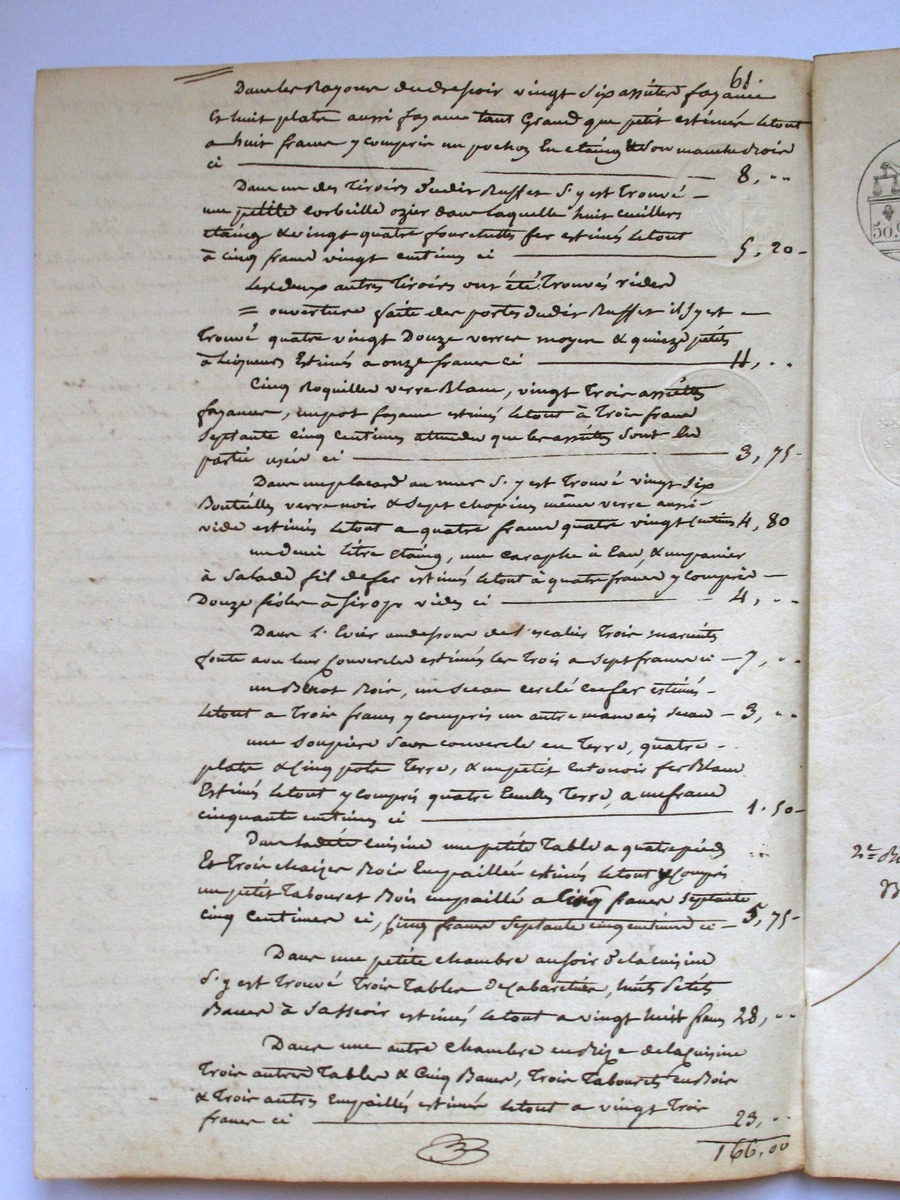 61.
Dans les Rayons du dressoir vingt six assiétes fayance
& huit plats aussi fayance tant Grand que petit estimés le tout
a huit francs y compris un pochon En etaing & son manche Bois
ci — 8, "
Dans un des Tiroirs dudit Buffet s'y est Trouvé —
une petite corbeille ozier dans laquelle huit cuillers
etaing & vingt quatre fourchettes fer estimés le tout
à cinq francs vingt centimes ci — 5, 20 -
Les deux autres Tiroirs ont été Trouvés vides
= ouverture faite des portes dudit Buffet il s'y est —
Trouvé quatre vingt Douze verres moyen & quinze petits
à Liqueurs Estimés a onze francs ci — 11, "
Cinq Roquilles verre Blanc, vingt Trois assiétes
fayances, un pot fayance estimés le tout à Trois francs
septante cinq centimes attendu que les assiétes sont En
partie usées ci — 3, 75 -
Dans un placard au mur s'y est Trouvé vingt six
Bouteilles verre noir & sept chopines même verre aussi
vide estimés le tout a quatre francs quatre vingt centimes 4, 80
un demi litre etaing, une caraphe à Eau, & un panier
à salade fil de fer estimés le tout à quatre francs y compris —
Douze fioles à sirops vides ci — 4, "
Dans L'Evier au dessous de l'escalier Trois marmites
fonte avec leur Couvercles estimés les Trois a sept francs ci — 7, "
un Benot Bois, un sceau cerclé en fer estimés -
le tout a Trois francs y compris un autre mauvais sceau — 3, "
une soupière sans couvercle en Terre, quatre -
plats & Cinq pots Terre, & un petit Entonoir fer Blanc
Estimés le tout y compris quatre Ecuelles Terre, a un franc
cinquante centimes ci — 1. 50 -
Dans ladite Cuisine une petite Table a quatre pieds
Et Trois chaizes Bois Empaillées estimés le tout y Compris
un petit Tabouret Bois empaillé a Cinq francs septante
cinq centimes ci, Cinq francs septante cinq centimes ci — 5, 75 -
Dans une petite chambre au soir de la cuisine
s'y est Trouvé Trois Tables de Cabaretier, huit petits
Bancs à s'asseoir estimés le tout a vingt huit francs 28, "
Dans une autre chambre en Bize de la Cuisine
Trois autres Tables & Cinq Bancs, Trois Tabourets en Bois
& Trois autres Empaillés estimés le tout a vingt Trois
francs ci — 23, "
166, 00
50.
2e